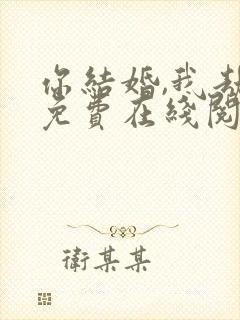 你結婚,我
免費在綫閱
衛某某